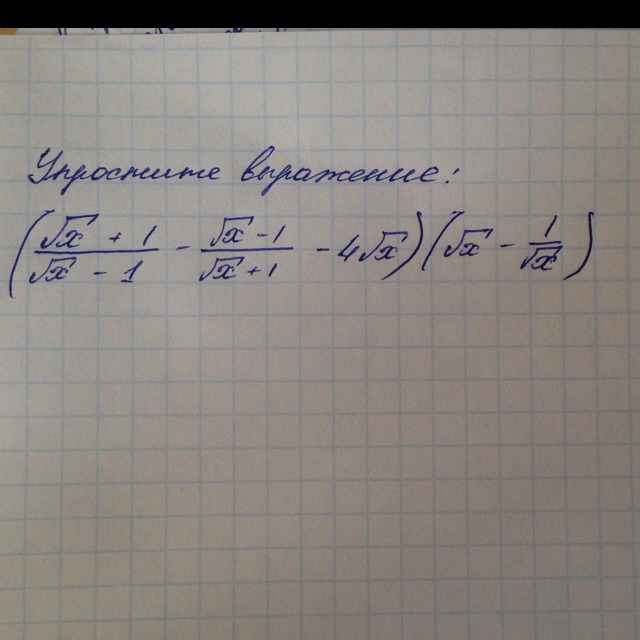 Упростите выражение:
(\frac{\sqrt{x} + 1}{\sqrt{x} - 1} - \frac{\sqrt{x} - 1}{\sqrt{x} + 1} - 4\sqrt{x})(\sqrt{x} - \frac{1}{\sqrt{x}})